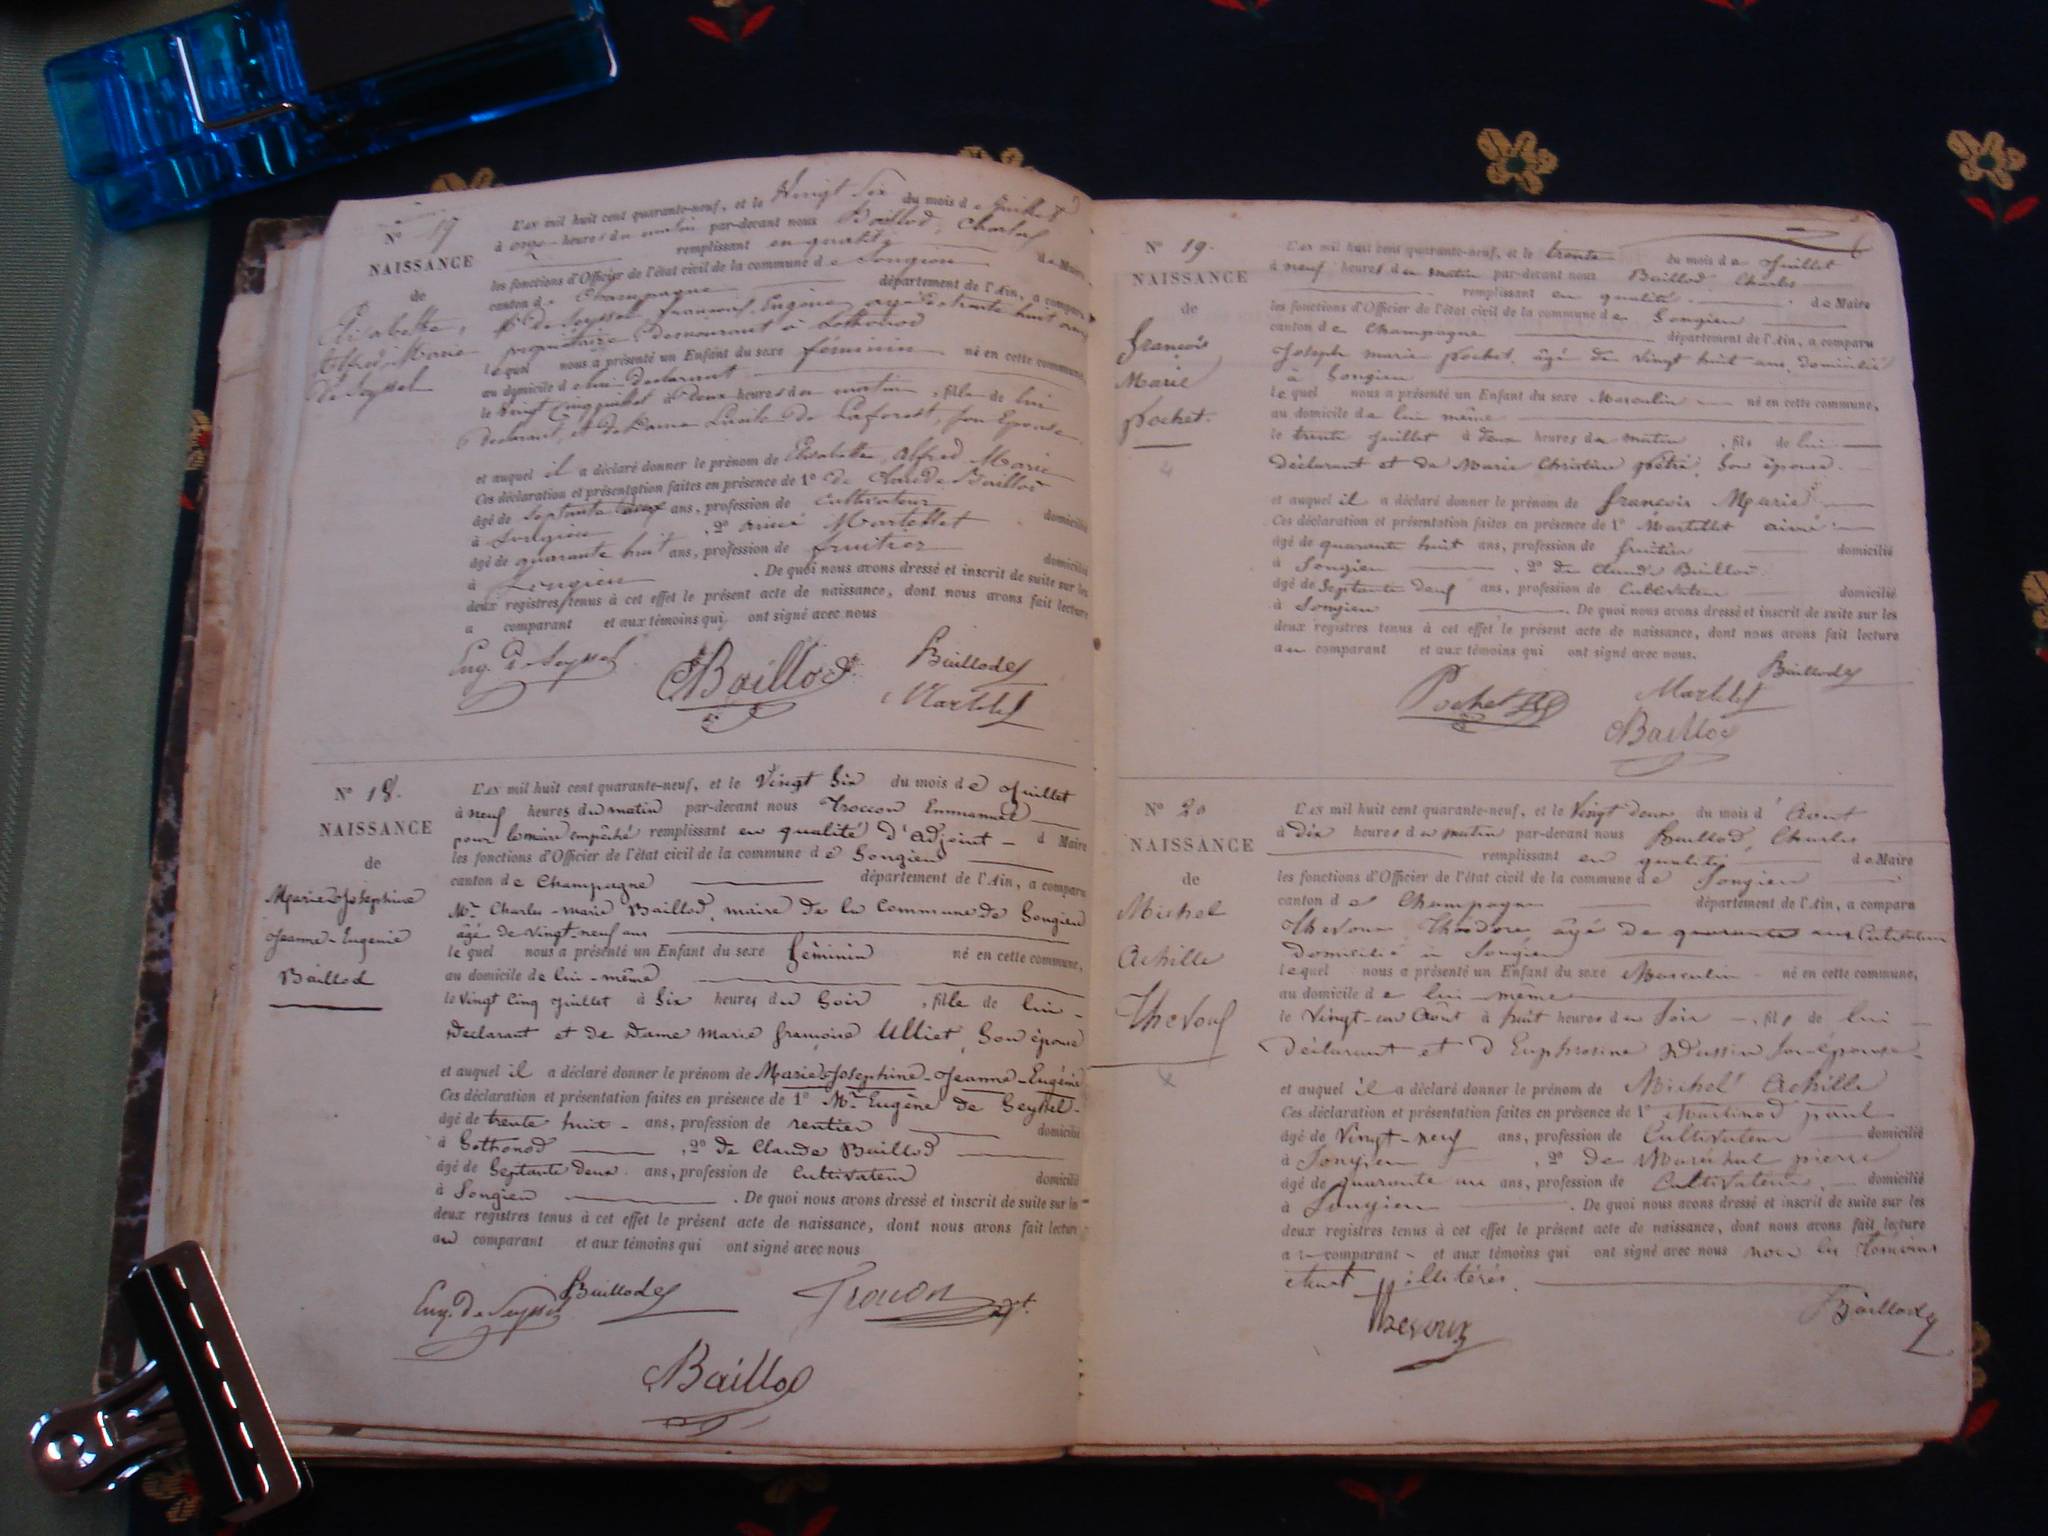 N° 17
NAISSANCE
de
Elisabette,
Alfred-Marie
de Seyssel
L'an mil huit cent quarante-neuf, et le Vingt Six du mois de Juillet
à onze heures du matin par-devant nous Baillod, Charles
remplissant en qualité de Maire
les fonctions d'Officier de l'état civil de la commune de Songieu
canton de Champagne département de l'Ain, a comparu
de Seyssel, francois, Eugène, agé de trente huit ans
propriaitaire, demeurant à Lothonod
lequel nous a présenté un Enfant du sexe féminin né en cette commune,
au domicile de lui declarant
le vingt cinq juillet à deux heures du matin, fille de lui
declarant, et de Dame Lucile de Laforest, son épouse
et auquel il a déclaré donner le prénom de Elisabette Alfred Marie
Ces déclaration et présentation faites en présence de 1° de Claude Baillod
âgé de septante deux ans, profession de cultivateur domicilié
à Songieu, 2° aimé Martellet
âgé de quarante huit ans, profession de fruitier domicilié
à Songieu. De quoi nous avons dressé et inscrit de suite sur les
deux registres tenus à cet effet le présent acte de naissance, dont nous avons fait lecture
a comparant et aux témoins qui ont signé avec nous
Eug. de Seyssel Baillod Baillod
Martelet
N° 18.
NAISSANCE
de
Marie-Josephine
Jeanne-Eugenie
Baillod
L'an mil huit cent quarante-neuf, et le Vingt Six du mois de Juillet
à neuf heures du matin par-devant nous Troccon Emmanuel
pour le maire empêché remplissant en qualité d'adjoint d Maire
les fonctions d'Officier de l'état civil de la commune de Songieu
canton de Champagne département de l'Ain, a comparu
Mr. Charles-marie Baillod, maire de la Commune de Songieu
âgé de vingt-neuf ans
lequel nous a présenté un Enfant du sexe féminin né en cette commune,
au domicile de lui-même
le Vingt Cinq Juillet à Six heures du Soir, fille de lui
Declarant et de Dame Marie françoise Ulliet, Son épouse
et auquel il a déclaré donner le prénom de Marie-Josephine-Jeanne-Eugénie
Ces déclaration et présentation faites en présence de 1° Mr. Eugène de Seyssel
âgé de trente huit ans, profession de rentier domicilié
à Gothonod, 2° de Claude Baillod
âgé de Septante deux ans, profession de Cultivateur domicilié
à Songieu. De quoi nous avons dressé et inscrit de suite sur les
deux registres tenus à cet effet le présent acte de naissance, dont nous avons fait lecture
au comparant et aux témoins qui ont signé avec nous
Eug. de Seyssel Baillod Trocon adjt.
Baillod
N° 19.
NAISSANCE
de
françois
Marie
Pochet.
L'an mil huit cent quarante-neuf, et le trente du mois de Juillet
à neuf heures du matin par-devant nous Baillod, Charles
remplissant en qualité de Maire
les fonctions d'Officier de l'état civil de la commune de Songieu
canton de Champagne département de l'Ain, a comparu
Joseph marie Pochet, âgé de vingt huit ans, domicilié
à Songieu
lequel nous a présenté un Enfant du sexe Masculin né en cette commune,
au domicile de lui même
le trente Juillet à deux heures du matin, fils de lui
déclarant et de Marie Christine Pétré, Son épouse.
et auquel il a déclaré donner le prénom de françois Marie
Ces déclaration et présentation faites en présence de 1° Martellet aimé
âgé de quarante huit ans, profession de fruitier domicilié
à Songieu, 2° de Claude Baillod
âgé de Septante deux ans, profession de Cultivateur domicilié
à Songieu. De quoi nous avons dressé et inscrit de suite sur les
deux registres tenus à cet effet le présent acte de naissance, dont nous avons fait lecture
au comparant et aux témoins qui ont signé avec nous.
Pochet Martelet Baillod
Baillod
N° 20
NAISSANCE
de
Michel
Achille
Thevoux
L'an mil huit cent quarante-neuf, et le Vingt deux du mois d'Aout
à dix heures du matin par-devant nous Baillod, Charles
remplissant en qualité de Maire
les fonctions d'Officier de l'état civil de la commune de Songieu
canton de Champagne département de l'Ain, a comparu
Thevoux Théodore, âgé de quarante ans Cultivateur
domicilié à Songieu
lequel nous a présenté un Enfant du sexe Masculin né en cette commune,
au domicile de lui même
le Vingt-un Août à huit heures du Soir, fils de lui
déclarant et d Euphrosine Dussin son épouse
et auquel il a déclaré donner le prénom de Michel Achille
Ces déclaration et présentation faites en présence de 1° Martinod paul
âgé de Vingt-neuf ans, profession de Cultivateur domicilié
à Songieu, 2° de Maréchal pierre
âgé de quarante un ans, profession de Cultivateur domicilié
à Songieu. De quoi nous avons dressé et inscrit de suite sur les
deux registres tenus à cet effet le présent acte de naissance, dont nous avons fait lecture
au comparant et aux témoins qui ont signé avec nous non les témoins
étant illitérés.
Thevoux Baillod